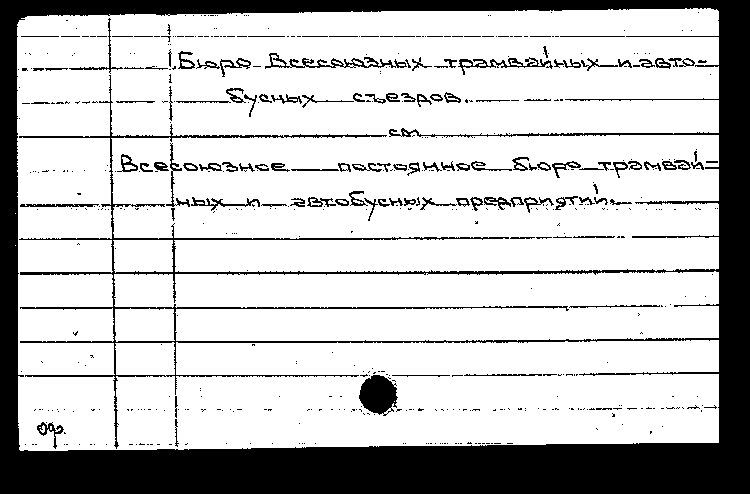 Бюро Всесоюзных трамвайных и авто-
бусных съездов.
см
Всесоюзное постоянное бюро трамвай=
ных и автобусных предприятий.